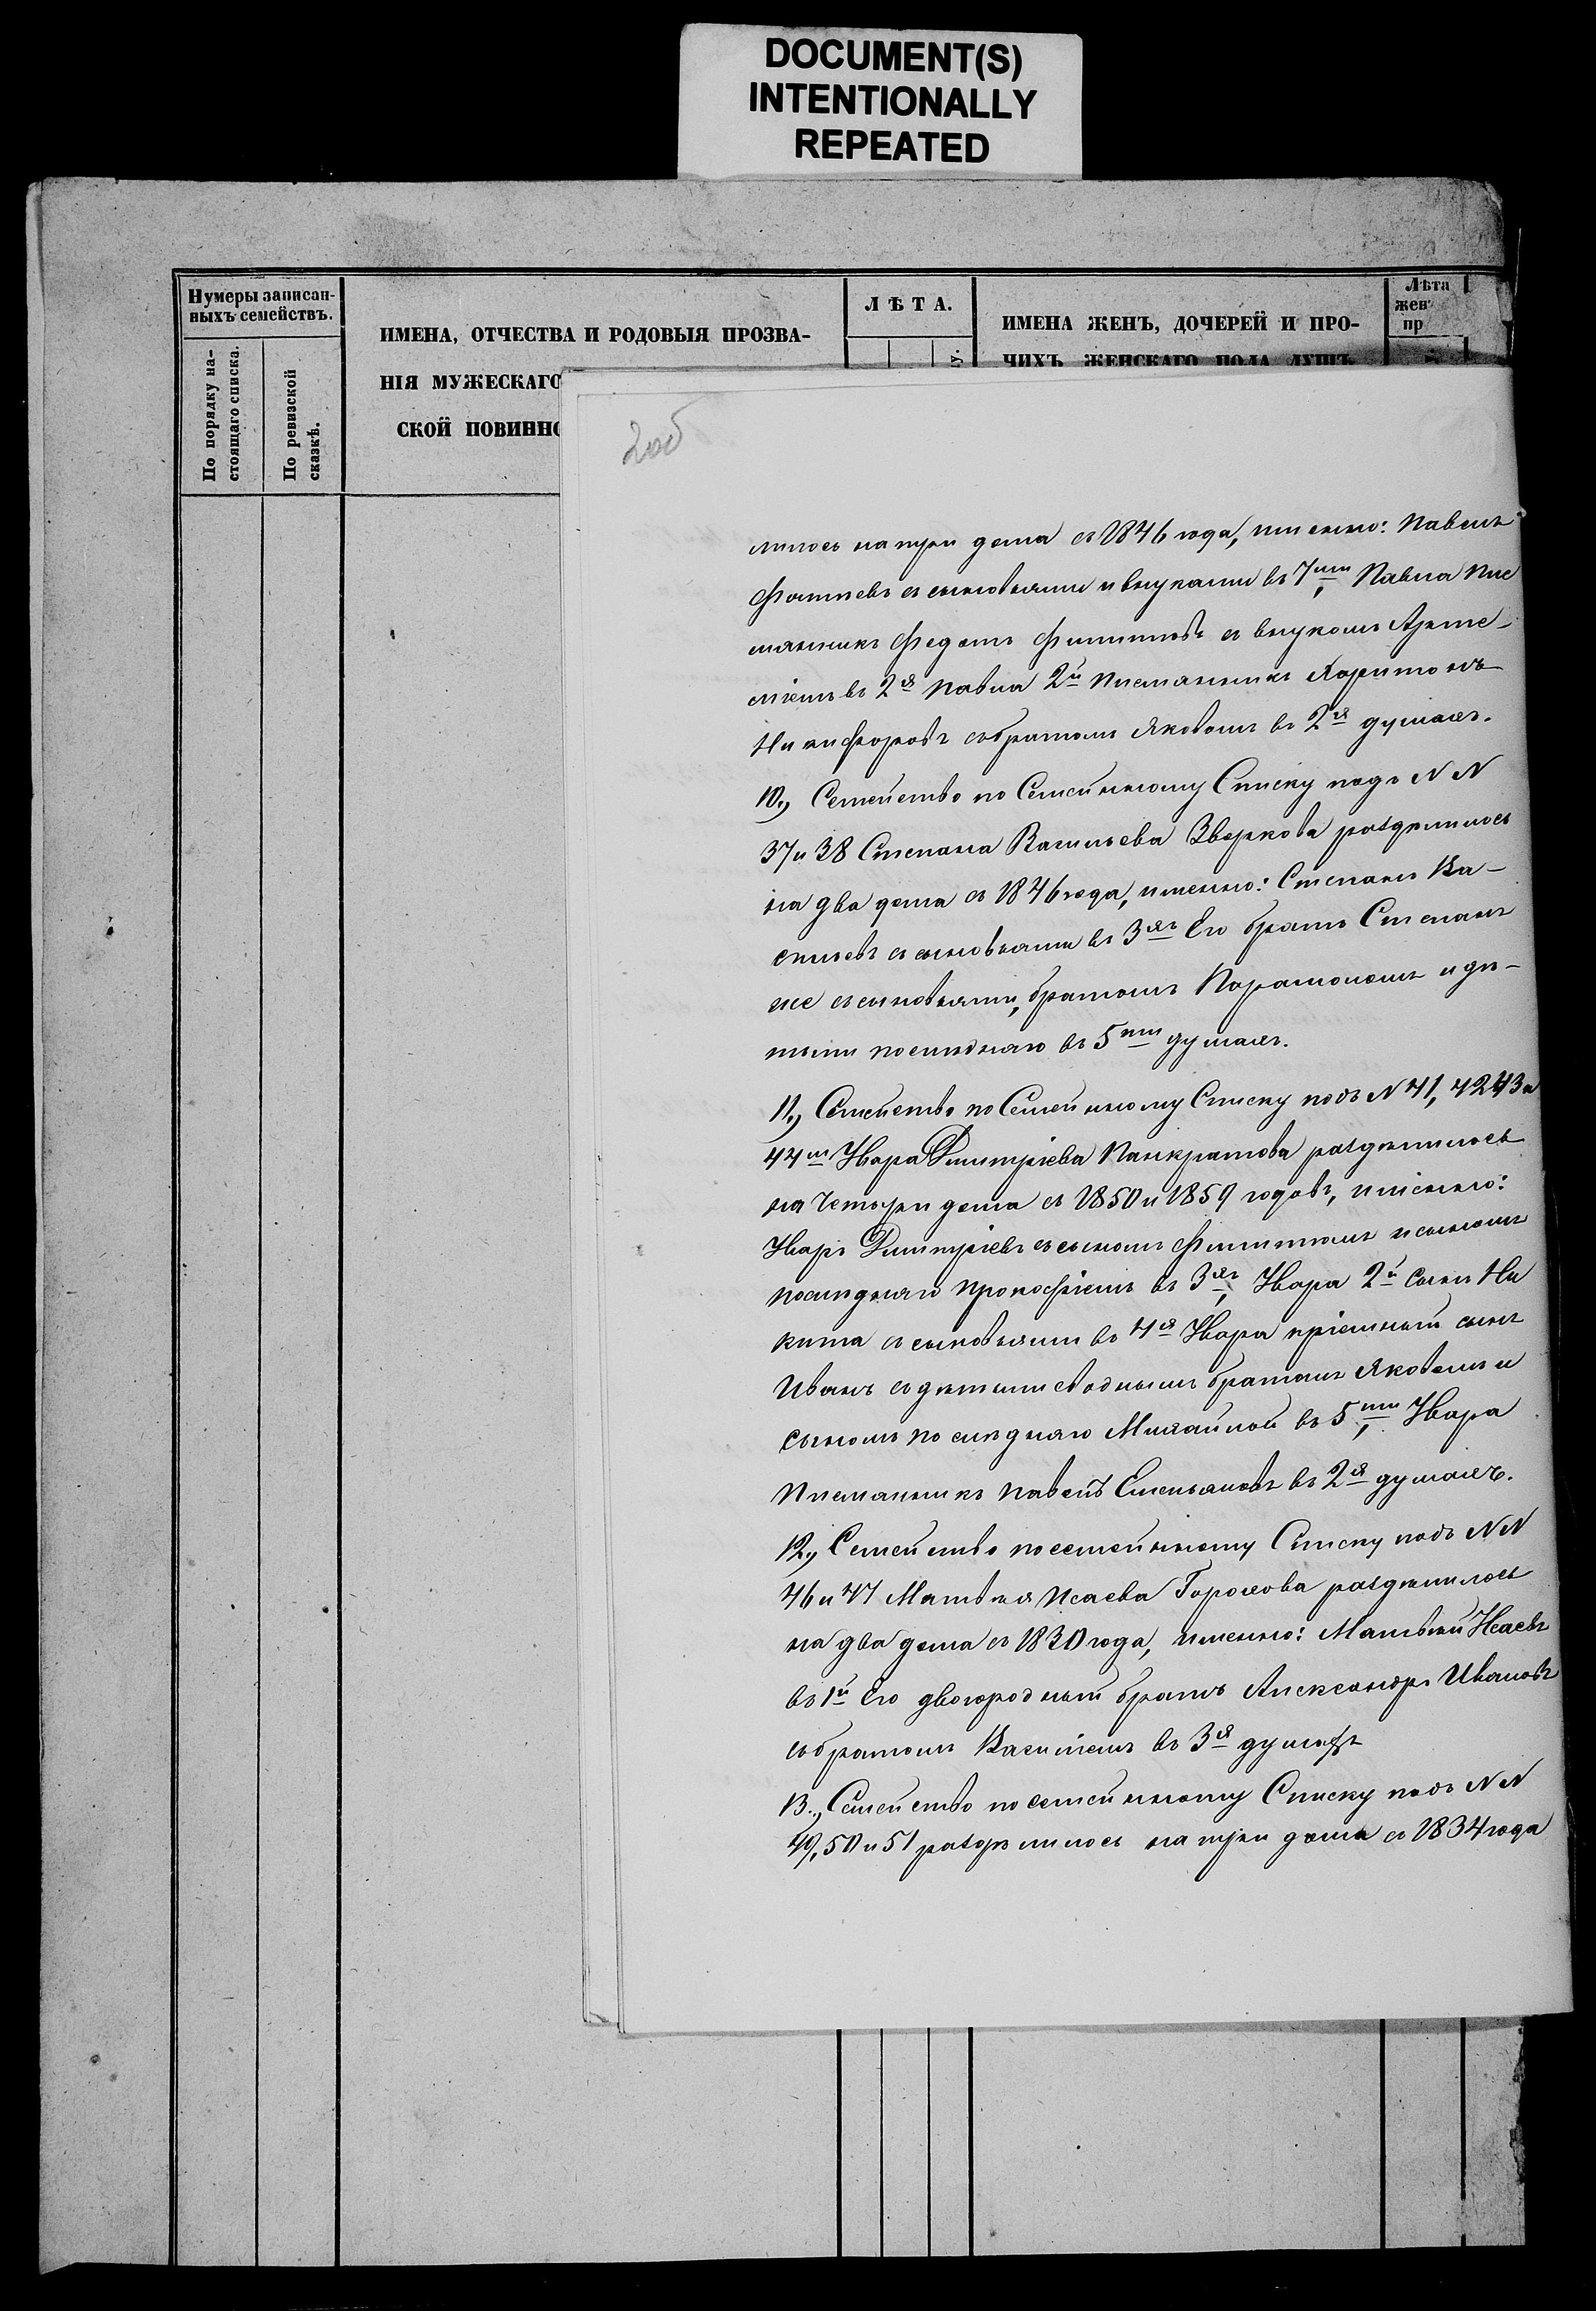 DOCUMENT(S)
INTENTIONALLY
REPEATED
Нумеры записан-
ныхъ семействъ.
По порядку на-
стоящаго списка.
По ревизской
сказкѣ.
ИМЕНА, ОТЧЕСТВА И РОДОВЫЯ ПРОЗВА-
НІЯ МУЖЕСКАГО
СКОЙ ПОВИННО
ЛѢТА.
У.
ИМЕНА ЖЕНЪ, ДОЧЕРЕЙ И ПРО-
ЧИХЪ ЖЕНСКАГО ПОЛА ДУШЪ
Лѣта
жен
пр
2об
лилось на три дома съ 1846 года, именно: Павелъ
съ сыновьями и внуками въ 7ми, Павла Пле
мянникъ Федотъ Филиповъ съ внукомъ Арте-
міемъ въ 2хъ Павла 2й Племянникъ Харитонъ
Никифоровъ съ братомъ Яковомъ въ 2хъ душахъ.
10., Семейство по Семейнному Списку подъ N N
37 и 38 Степана Васильева Зверкова раздѣлилось
на два дома съ 1846 года, именно: Степанъ Ва-
сильевъ съ сыновьями въ 3хъ Его братъ Степанъ
же съ сыновьями, братомъ Парамономъ и дѣ-
тьми послѣдняго въ 5ти душахъ.
11., Семейство по Семейнному Списку подъ N 41, 42 43 и
44м Увара Дмитріева Панкратова раздѣлилось
на Четыри дома съ 1850 и 1859 годовъ, именно:
Уваръ Дмитріевъ съ сыномъ Филиппомъ и сыномъ
послѣдняго Прокофіемъ въ 3хъ, Увара 2й Сынъ Ни
кита съ сыновьями въ 4хъ Увара пріемный сынъ
Иванъ съ дѣтьми сводными братомъ Яковомъ и
сыномъ послѣдняго Михайлой въ 5ти, Увара
Племянникъ Павелъ Емельяновъ въ 2хъ душахъ.
12., Семейство по семейнному Списку подъ N N
46 и 47 Матвѣя Исаева Горохова раздѣлилось
на два дома съ 1830 года, именно: Матвѣй Исаевъ
въ 1й Его двоюродный братъ Александръ Ивановъ
съ братомъ Василіемъ въ 3хъ душахъ
13., Семейство по семейнному Списку подъ N N
49, 50 и 51 раздѣлилось на три дома съ 1834 года